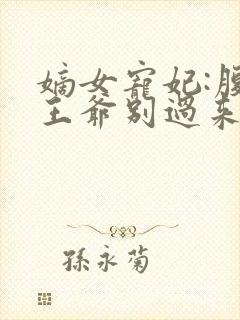 嫡女寵妃:
王爺别過来
孫永菊